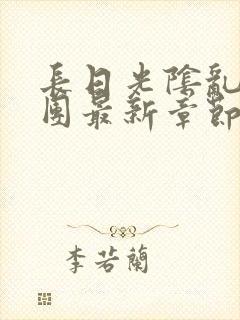 長日光陰亂
團最新章節
李若蘭